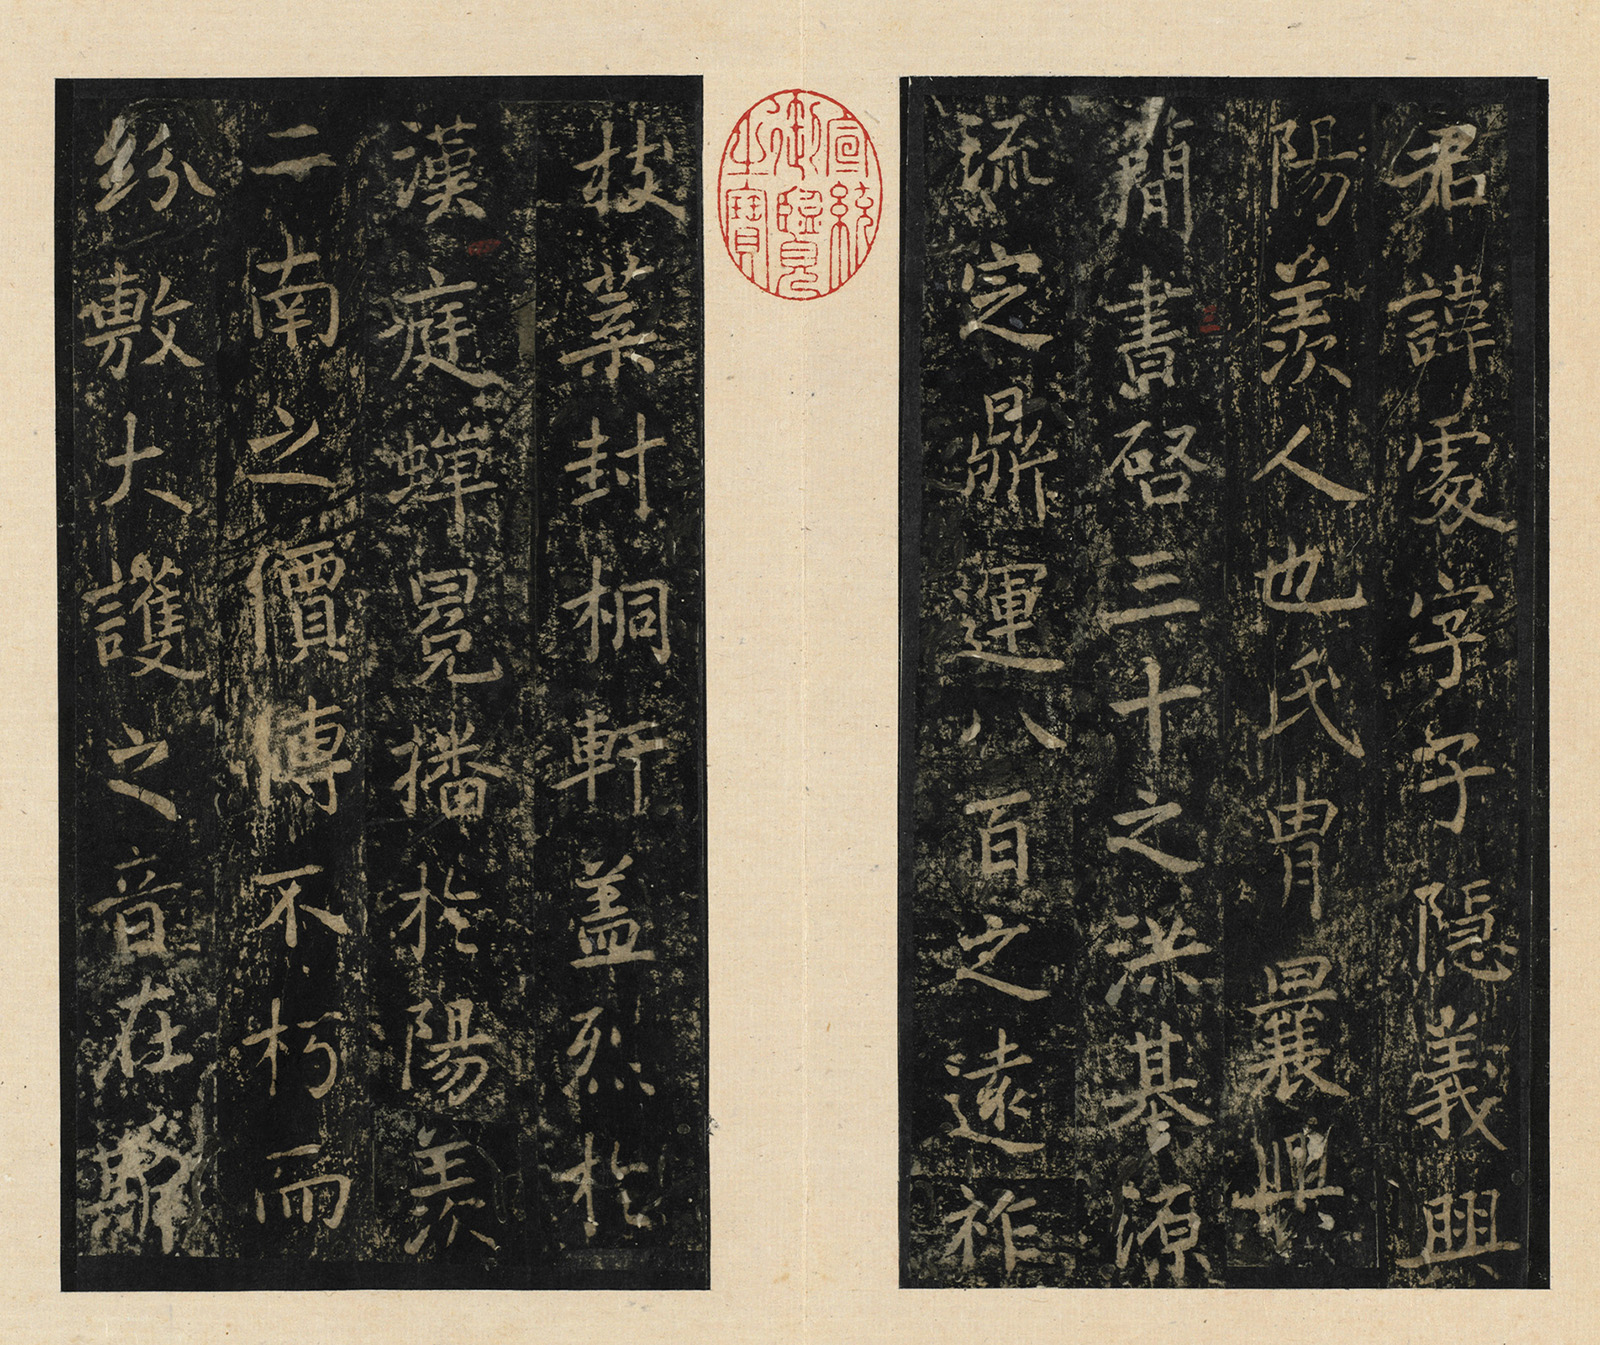 君諱處字子隱義興
陽羨人也氏冑曩興
簡書啓三十之洪基源
流定鼎運八百之遠祚
宣統御覽之寶
枝葉封桐軒蓋烈於
漢庭蟬冕播於陽羨
二南之價傳不朽而
紛敷大護之音在